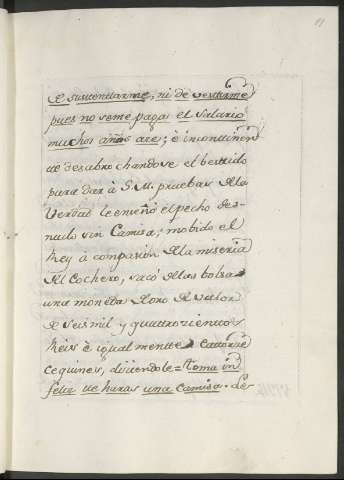 11
de sustentarme, ni de vestirme
pues no se me paga el Salario
muchos años aze; è incontinen
te desabrochandose el bestido
para dar à S. M. pruebas dela
Verdad le enseñò el pecho des-
nudo sin Camisa; mobido el
Rey à compasion dela miseria
del Cochero, sacò dela bolsa
una moneda de oro de valor
de seis mil y quattrocientos
Reis è igualmente Cattorze
Cequines, diciendole = toma in
feliz te haras una Camisa. des